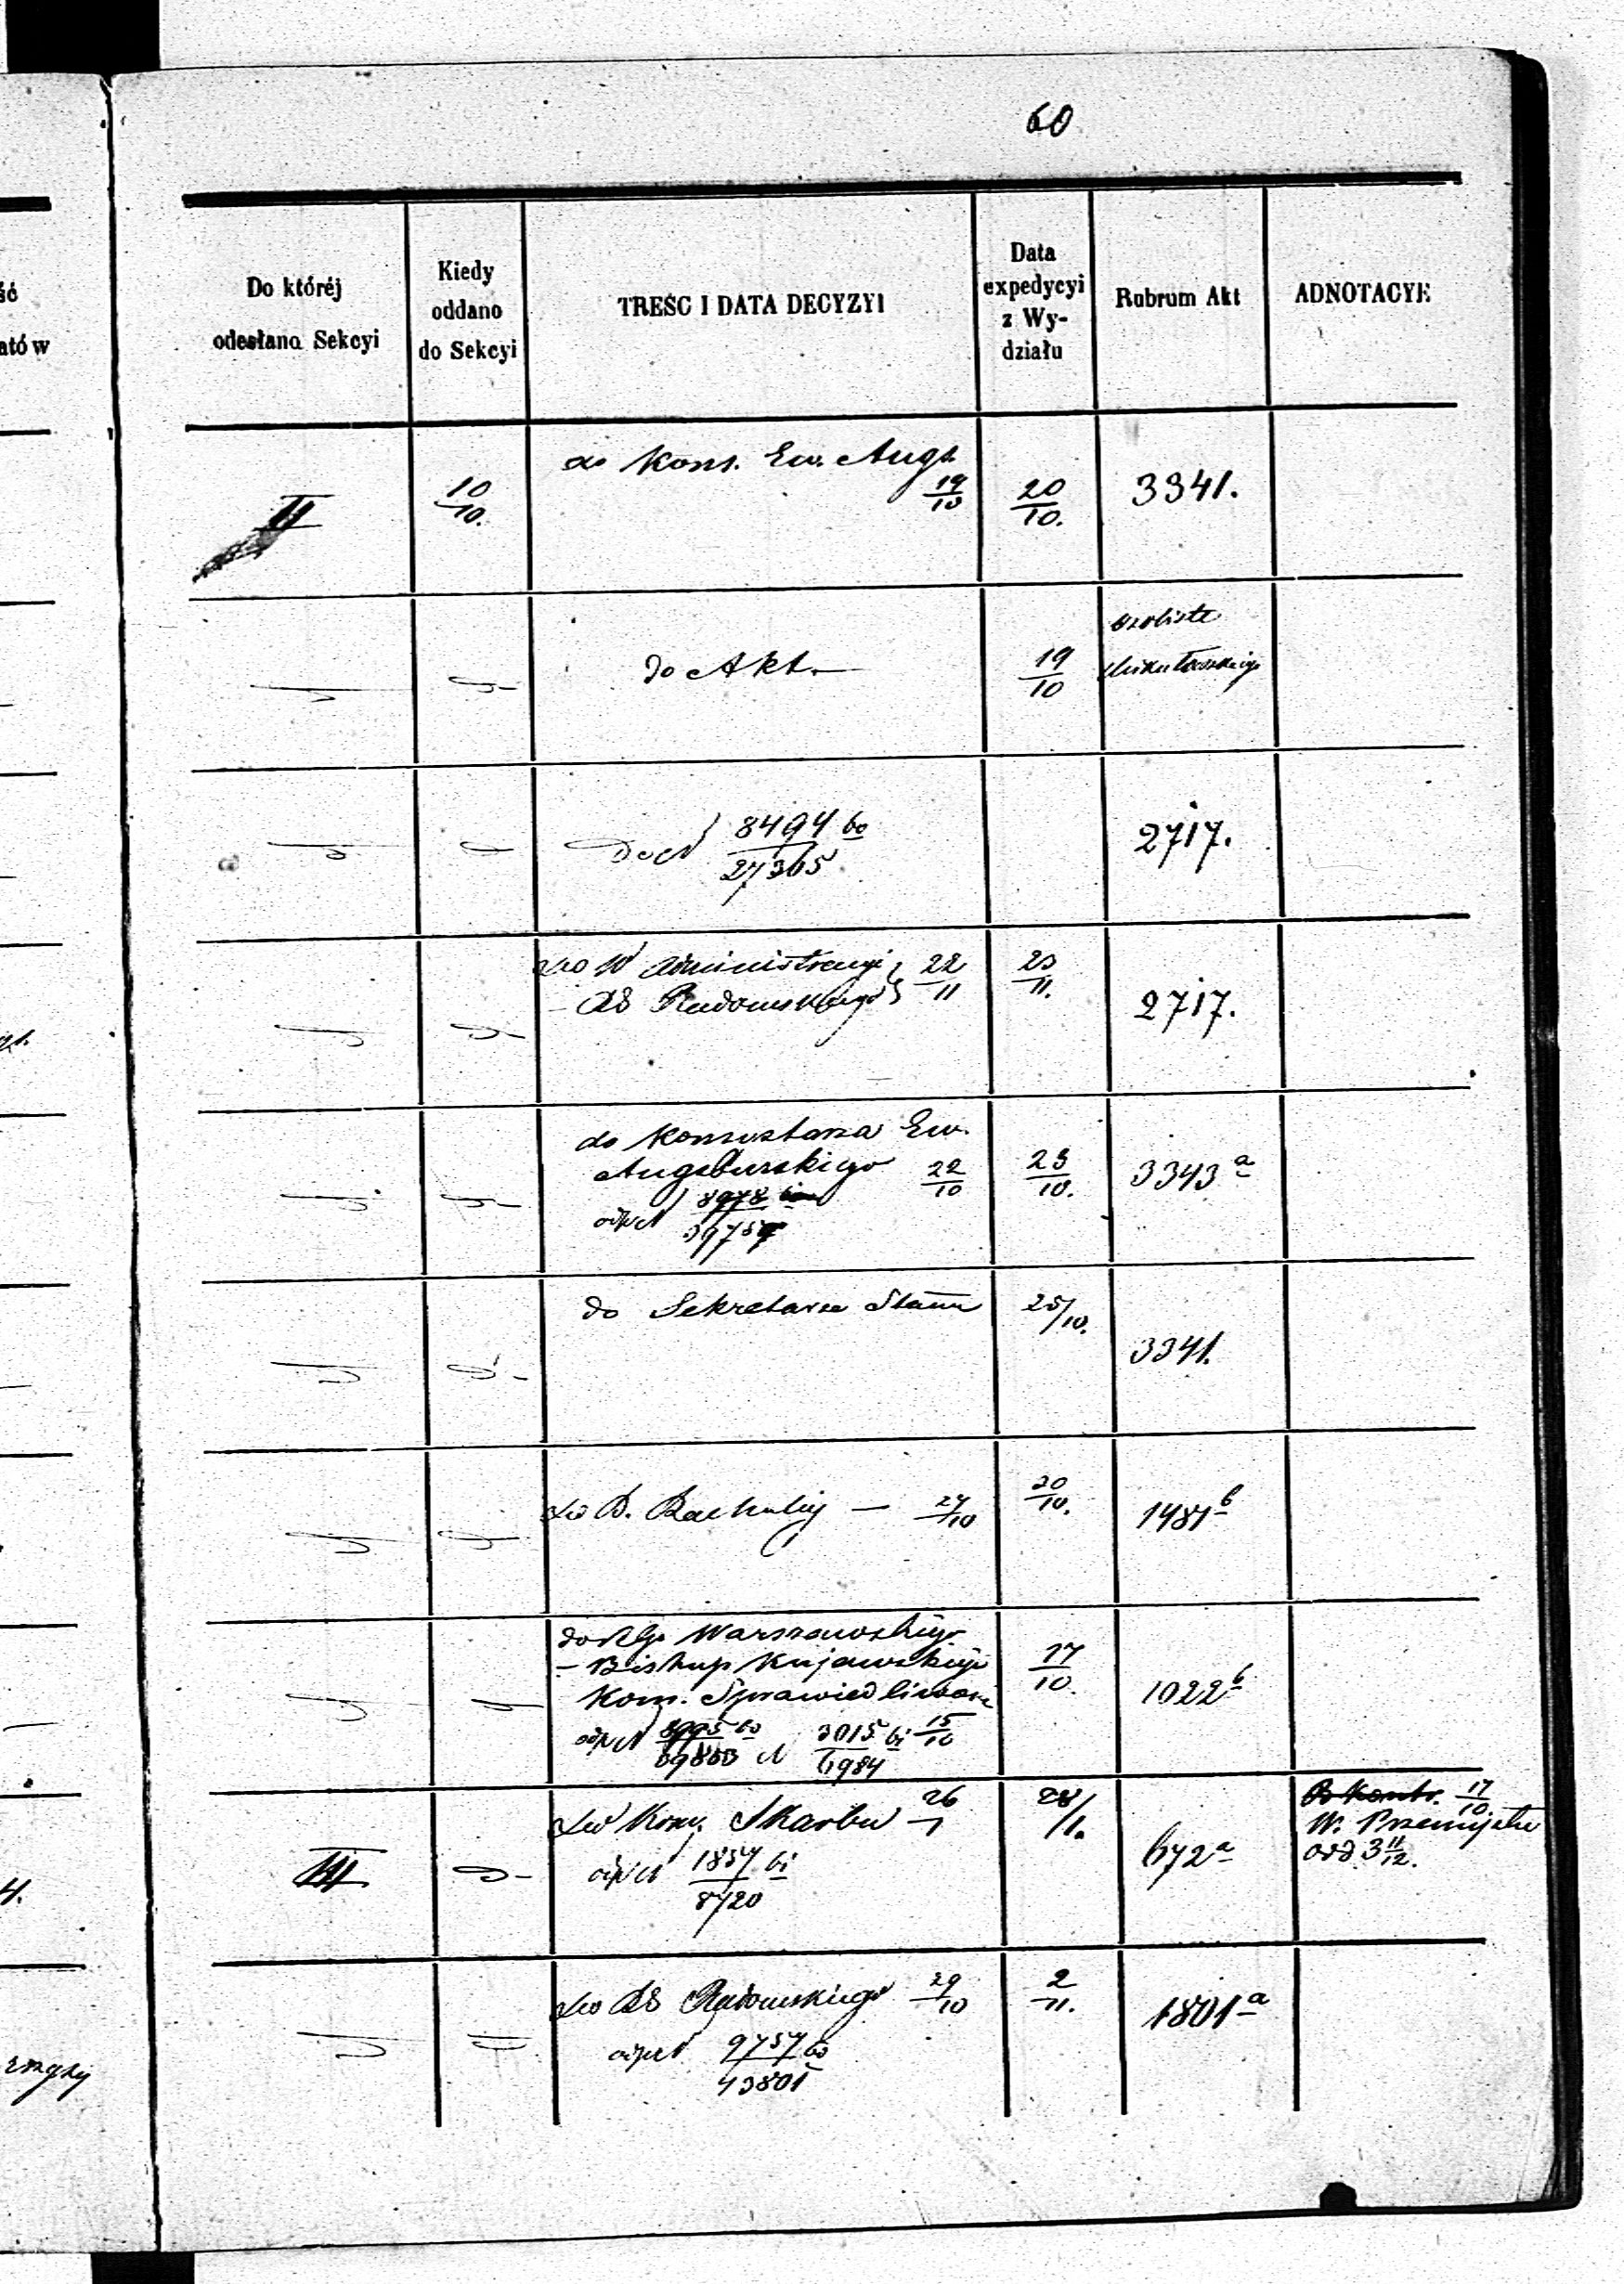 60
Do któréj
odesłano Sekcyi
Kiedy
oddano
do Sekcyi
TREŚC I DATA DECYZYI
Data
expedycyi
z Wy-
działu
Rubrum Akt
ADNOTACYE
ść
atów
II
10/10.
do Kons. Ew. Augs.
19/10
20/10.
3341.
do Akt.
19/10
osobiste
8494 bo
27365
2717.
do W Administracyi
– RG Radomskiego
22/11
23/11.
2717.
do Konsystorza Ew.
Augsburskiego 22/10
23/10.
3343 a
do Sekretarza Stanu
25/10.
3341.
do B. Rachuby — 27/10
1481 b
do Rządu Warszawskiego
– Biskup Kujawskiego
Kom. Sprawiedliwości
3015 bi 15/10
6984
17/10.
1022 b
III
do Kom. Skarbu 26/1
1857 bi
8720
28/1.
672 a
B Kontr. 17/10
W. Przemysłu
3 11/12.
do RG Radomskiego 29/10
9757 bo
43801
2/11.
1801 a